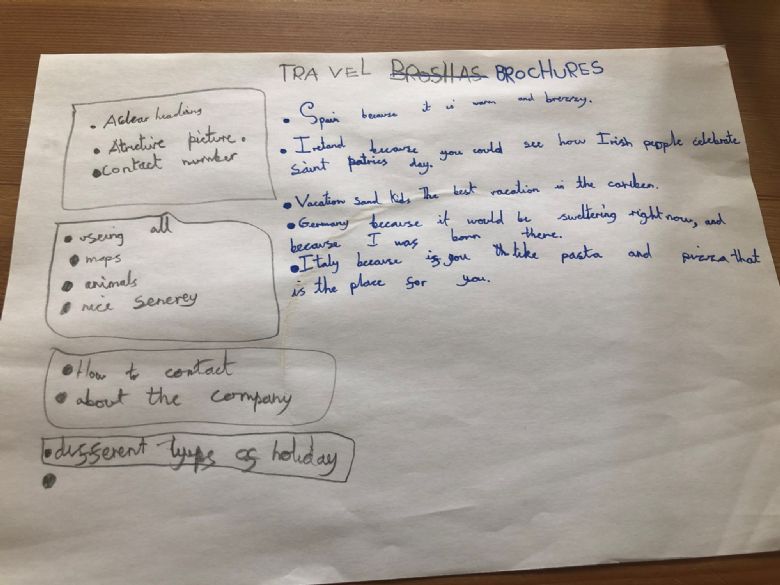 TRAVEL BROSHAS BROCHURES
• A clear heading
• Atructive picture.
• Contact number
• useing all
• maps
• animals
• nice Senerey
• How to contact
• about the company
• different types of holiday
• Spain because it is warm and breezey.
• Ireland because you could see how Irish people celebrate
saint patrics day.
• Vacation sand kids the best vacation in the cariben.
• Germany because it would be sweltering right now, and
because I was born there.
• Italy because if you like pasta and pizza that
is the place for you.